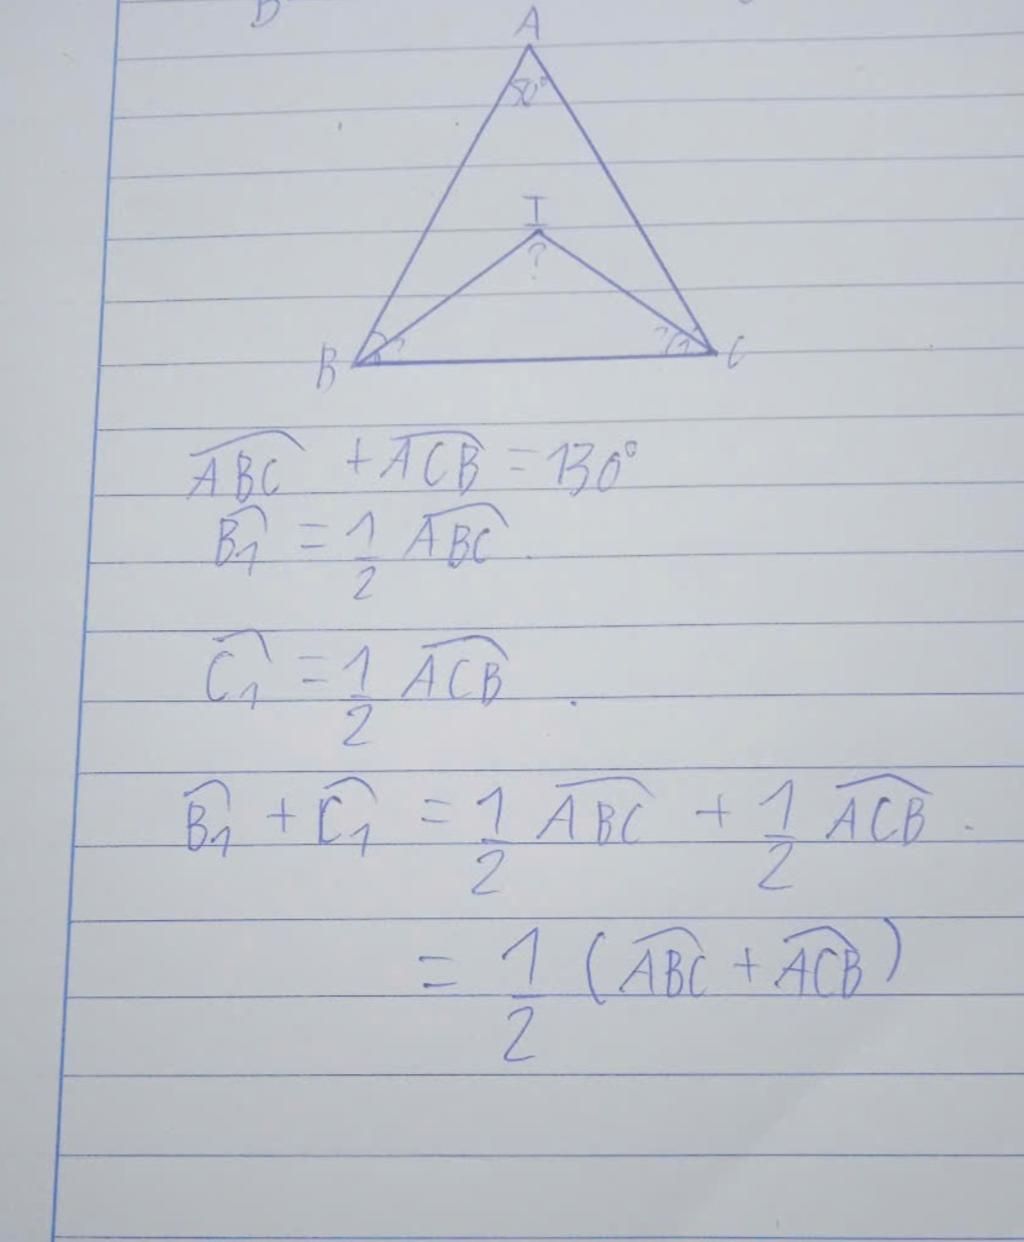 A
50°
I
?
B
?
? 1
C
ABC + ACB = 130°
B1 = 1/2 ABC.
C1 = 1/2 ACB.
B1 + C1 = 1/2 ABC + 1/2 ACB.
= 1/2 (ABC + ACB)